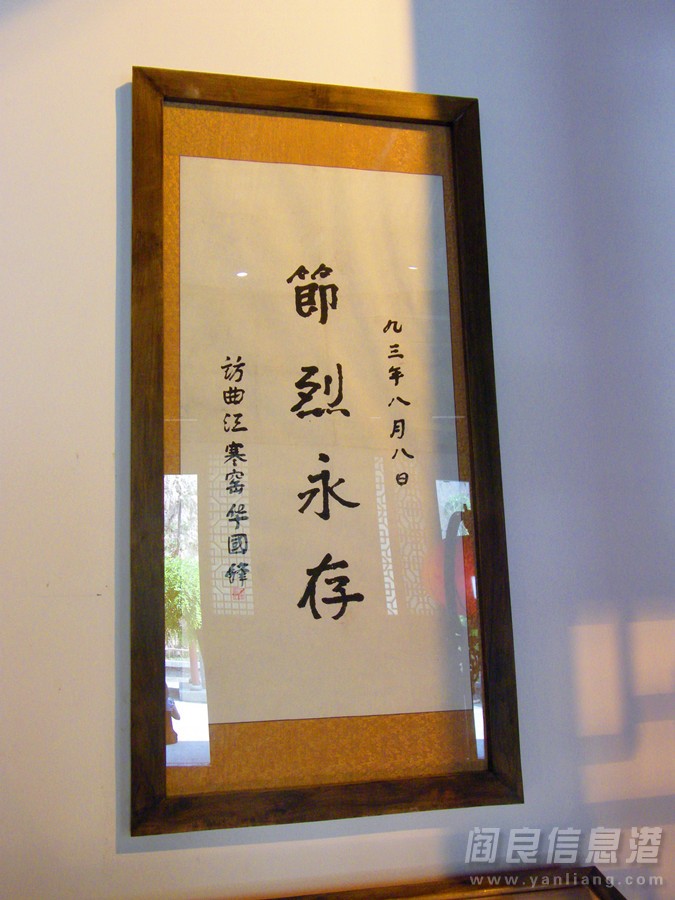 九三年八月八日
節烈永存
访曲江寒窑 华國鋒
阎良信息港
www.yanliang.com